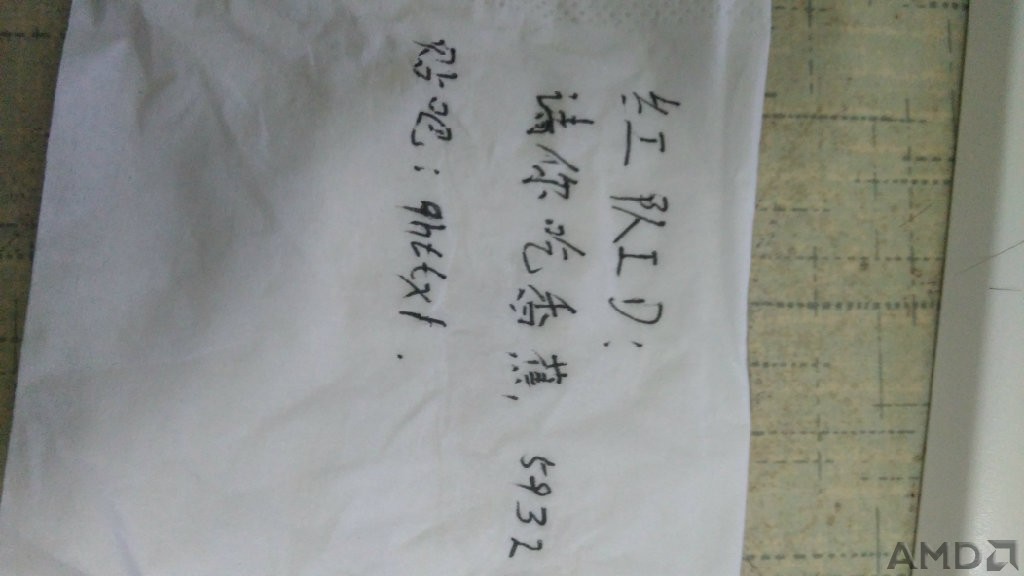 红队ID:
请你吃香蕉, 5932
贴吧:qhttxf.
AMD